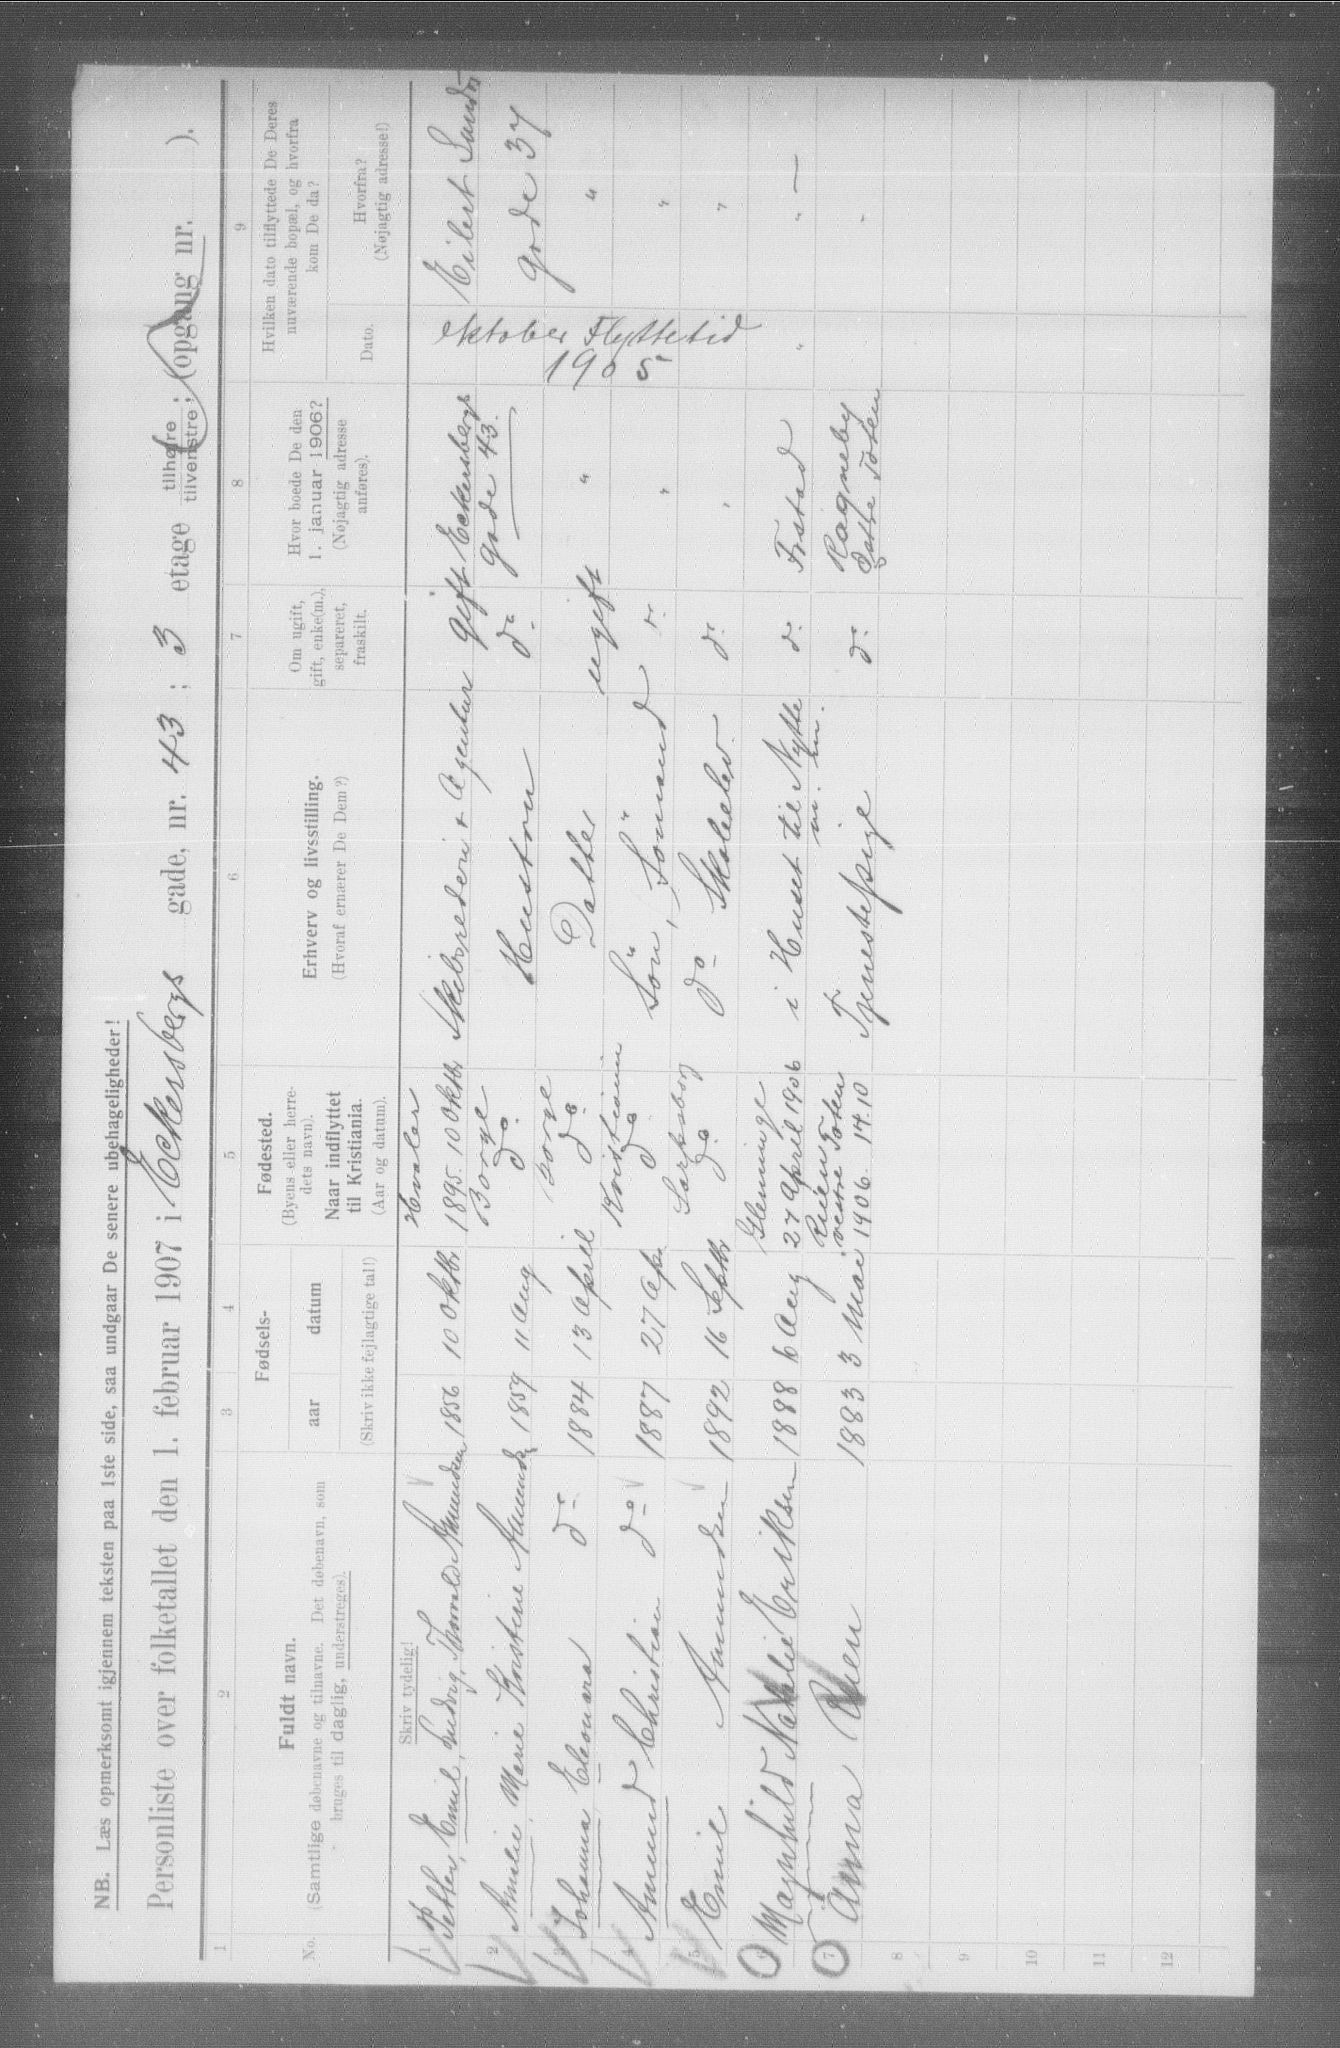 NB. Læs opmerksomt igjennem teksten paa 1ste side, saa undgaar De senere ubehageligheder!
Personliste over folketallet den 1. februar 1907 i Eckersbergs gade, nr. 43 ; 3 etage tilhøire tilvenstre ; (opgang nr. ).
1 2 3 4 5 6 7 8 9
No.
Fuldt navn.
(Samtlige døbenavne og tilnavne. Det døbenavn, som
bruges til daglig, understreges).
Fødsels-
aar datum
(Skriv ikke fejlagtige tal!)
Fødested.
(Byens eller herre-
dets navn).
Naar indflyttet
til Kristiania.
(Aar og datum).
Erhverv og livsstilling.
(Hvoraf ernærer De Dem?)
Om ugift,
gift, enke(m.),
separeret,
fraskilt.
Hvor boede De den
1. januar 1906?
(Nøjagtig adresse
anføres).
Hvilken dato tilflyttede De Deres
nuværende bopæl, og hvorfra
kom De da?
Dato.
Hvorfra?
(Nøjagtig adresse!)
Skriv tydelig!
Hvaler
1 Petter, Emil, Ludvig, Thorvald Amundsen 1856 10 Oktbr 1895. 10 Oktbr Skibsrederi & Agentur gift Eckersbergs oktober Flyttetid Eilert Sundts
Borge
2 Amalie Marie Kristine Amundsen 1859 11 Aug do Hustru do gade 43. 1905 gade 37
Borge
3 Johanna Eleonora do 1884 13 April do Datter ugift " "
Kristiania
4 Amund Christian do 1887 27 Apr do Søn, Sømand do " "
Sarpsborg
5 Emil Amundsen 1892 16 Septbr do do Skoleelev do " "
Glemminge
6 Magnhild Natalie Eriksen 1888 6 Aug 27 April 1906 i Huset til Nytte do Frstad " " —
Rueien
vestre Toten
7 Anna 1883 3 Mai 1906 14.10 Tjenestepige do Ragneby "
Toten
8
9
10
11
12